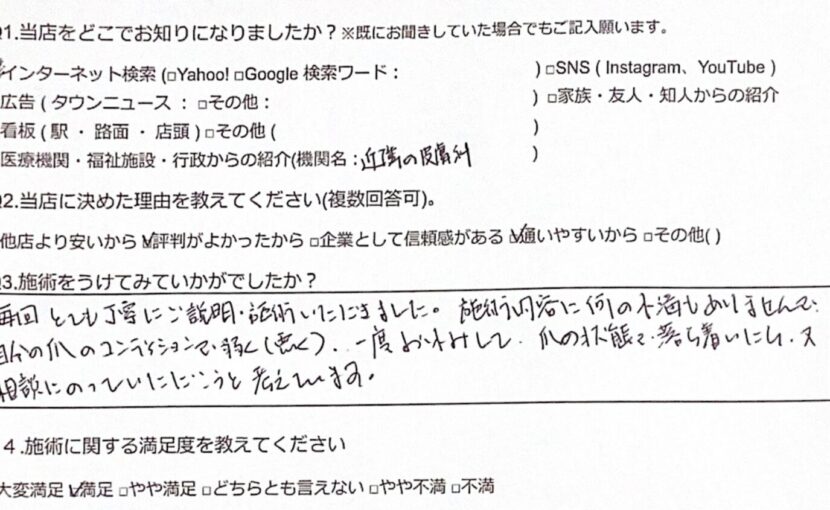 Q1.当店をどこでお知りになりましたか？※既にお聞きしていた場合でもご記入願います。
インターネット検索 (□Yahoo! □Google 検索ワード： ) □SNS ( Instagram、YouTube )
広告 ( タウンニュース ： □その他： ) □家族・友人・知人からの紹介
看板 ( 駅 ・ 路面 ・ 店頭 ) □その他 ( )
医療機関・福祉施設・行政からの紹介(機関名：近隣の皮膚科 )
Q2.当店に決めた理由を教えてください(複数回答可)。
他店より安いから ☑評判がよかったから □企業として信頼感がある ☑通いやすいから □その他( )
Q3.施術をうけてみていかがでしたか？
毎回 とても丁寧にご説明・施術いただきました。施術内容に何の不満もありませんで、
自分の爪のコンディションで、弱く(悪く)、一度お休みして、爪の状態で落ち着いたら、又
相談にのっていただこうと考えています。
４.施術に関する満足度を教えてください
大変満足 ☑満足 □やや満足 □どちらとも言えない □やや不満 □不満